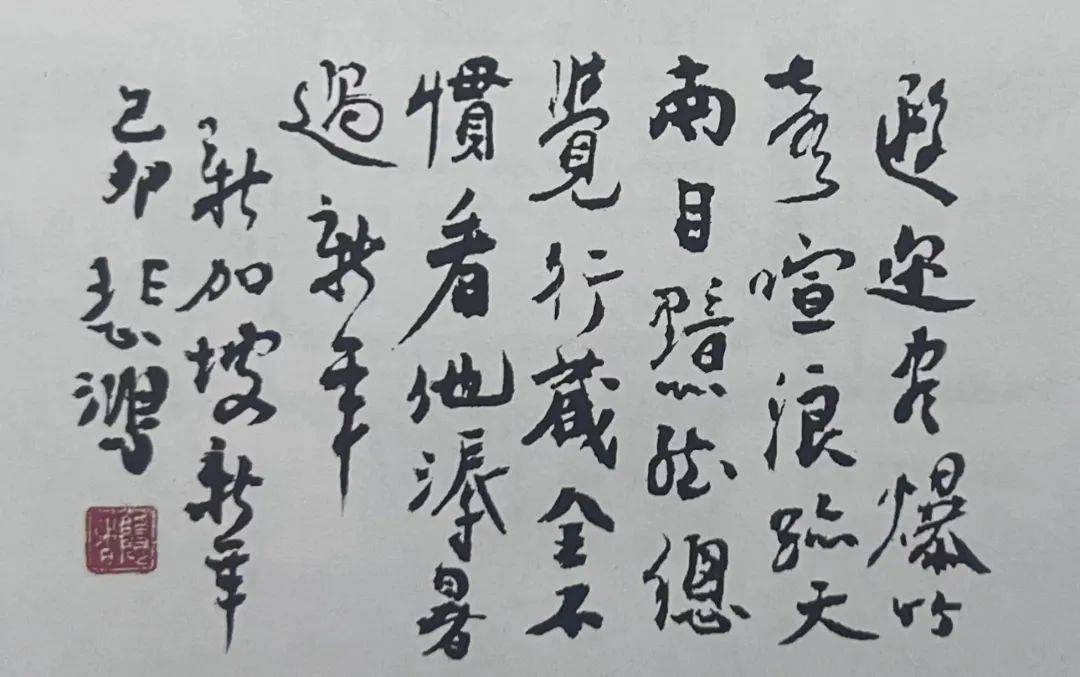 遐迩爆竹
喧浪跡天
南目黯然總
覺行藏全不
慣看他溽暑
過新年
新加坡新年
己卯 悲鴻